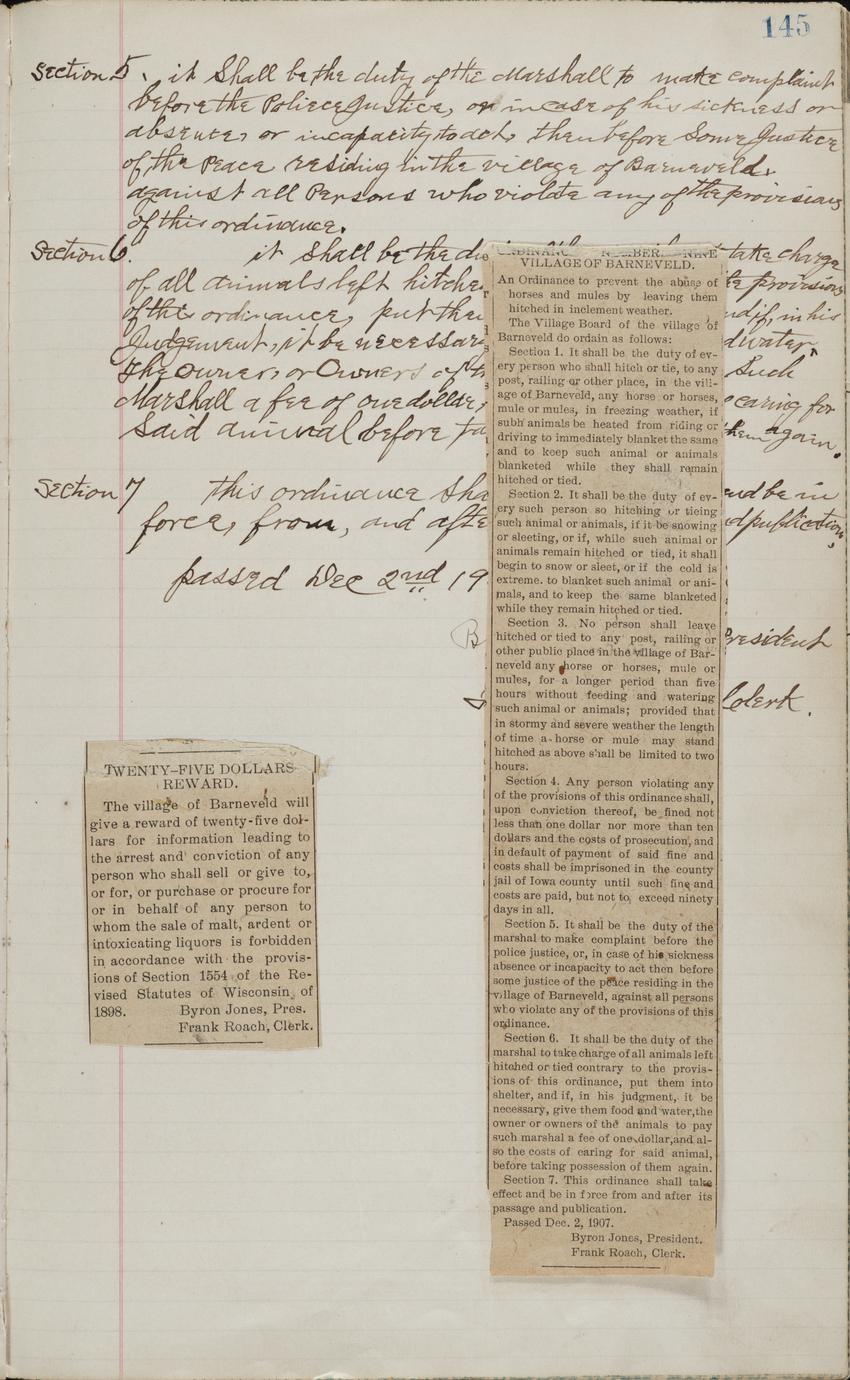 145
Section 5. it Shall be the duty of the Marshall to make complaint
before the Poliece Justice, or in case of his sickness or
absence, or incapacity to act, then before Some Justice
of the Peace residing in the village of Barneveld.
against all Persons who violate any of the provisions
of this ordinance.
Section 6. it Shall be the du take charge
of all animals left hitche provisions
of this ordinance, put the if, in his
Judgement, it be necessar water,
the Owner, or Owners of th Such
Marshall a fee of one dollar, caring for
Said animal before ta them again.
Section 7 this ordinance Sha and be in
force, from, and afte publication,
passed Dec 2nd 19
B President
Clerk.
ORDINANC NUMBER NINE
VILLAGE OF BARNEVELD.
An Ordinance to prevent the abuse of
horses and mules by leaving them
hitched in inclement weather.
The Village Board of the village of
Barneveld do ordain as follows:
Section 1. It shall be the duty of ev-
ery person who shall hitch or tie, to any
post, railing or other place, in the vill-
age of Barneveld, any horse or horses,
mule or mules, in freezing weather, if
subh animals be heated from riding or
driving to immediately blanket the same
and to keep such animal or animals
blanketed while they shall remain
hitched or tied.
Section 2. It shall be the duty of ev-
ery such person so hitching or tieing
such animal or animals, if it be snowing
or sleeting, or if, while such animal or
animals remain hitched or tied, it shall
begin to snow or sleet, or if the cold is
extreme. to blanket such animal or ani-
mals, and to keep the same blanketed
while they remain hitched or tied.
Section 3. No person shall leave
hitched or tied to any post, railing or
other public place in the village of Bar-
neveld any horse or horses, mule or
mules, for a longer period than five
hours without feeding and watering
such animal or animals; provided that
in stormy and severe weather the length
of time a horse or mule may stand
hitched as above shall be limited to two
hours.
Section 4. Any person violating any
of the provisions of this ordinance shall,
upon conviction thereof, be fined not
less than one dollar nor more than ten
dollars and the costs of prosecution, and
in default of payment of said fine and
costs shall be imprisoned in the county
jail of Iowa county until such fine and
costs are paid, but not to exceed ninety
days in all.
Section 5. It shall be the duty of the
marshal to make complaint before the
police justice, or, in case of his sickness
absence or incapacity to act then before
some justice of the peace residing in the
village of Barneveld, against all persons
who violate any of the provisions of this
ordinance.
Section 6. It shall be the duty of the
marshal to take charge of all animals left
hitched or tied contrary to the provis-
ions of this ordinance, put them into
shelter, and if, in his judgment, it be
necessary, give them food and water, the
owner or owners of the animals to pay
such marshal a fee of one dollar, and al-
so the costs of caring for said animal,
before taking possession of them again.
Section 7. This ordinance shall take
effect and be in force from and after its
passage and publication.
Passed Dec. 2, 1907.
Byron Jones, President.
Frank Roach, Clerk.
TWENTY-FIVE DOLLARS
REWARD.
The village of Barneveld will
give a reward of twenty-five dol-
lars for information leading to
the arrest and conviction of any
person who shall sell or give to,
or for, or purchase or procure for
or in behalf of any person to
whom the sale of malt, ardent or
intoxicating liquors is forbidden
in accordance with the provis-
ions of Section 1554 of the Re-
vised Statutes of Wisconsin of
1898. Byron Jones, Pres.
Frank Roach, Clerk.